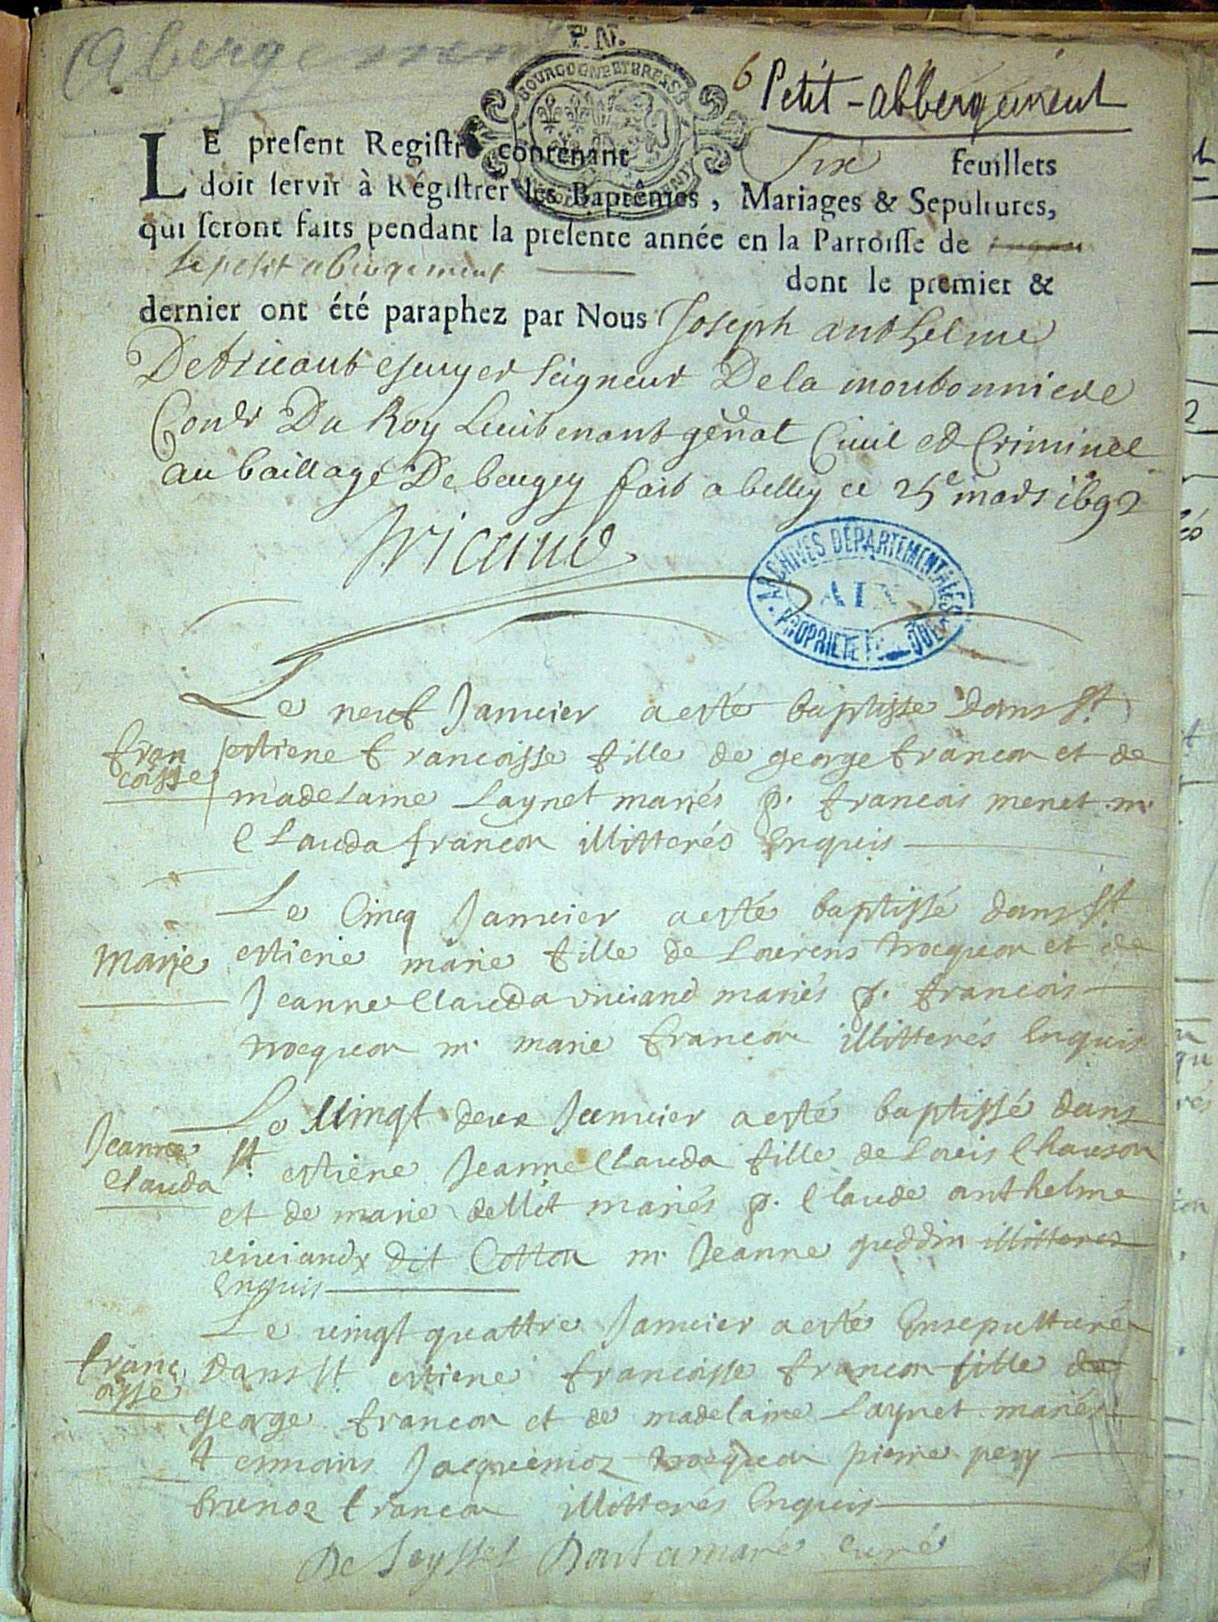 Abergement
F.N.
BOURGOGNE ET BRESSE
6 Petit-abbergement
LE present Registre contenant Six feuillets
doit servir à Régistrer les Baptêmes, Mariages & Sepultures,
qui seront faits pendant la presente année en la Parroisse de
le petit abergement dont le premier &
dernier ont été paraphez par Nous Joseph anthelme
Detricaut escuyer seigneur De la moubonniere
Conser Du Roy Lieutenant gênal Ciuil et Criminel
au bailliage De beugey fait a belley ce 25e mars 1692
Tricaud
ARCHIVES DÉPARTEMENTALES
AIN
PROPRIETE PUBLIQUE
Le neuf Januier a esté baptisse dans st
fran
coisse
estiene francoisse fille de george francon et de
madelaine Laynet mariés p. francois menet m.
Clauda francon illitterés Enquis
Le Cinq Januier a esté baptissé dans st
Marie
estiene marie fille de Lourens trocquon et de
Jeanne Clauda viuiand mariés p. francois
trocquon m. marie francon illitterés Enquis
Le Vingt deux Januier a esté baptissé dans
Jeanne
Clauda
st estiene Jeanne Clauda fille de Louis Chauson
et de marie mariés p. Claude anthelme
viuiand dit Cotton m. Jeanne guddin illitteres
Enquis
Le vingt quattre Januier a esté Ensepulturé
franc
oisse
dans st estiene francoisse francon fille de
george francon et de madelaine Laynet mariés
temoins Jacquemoz trocquon pierre pery
brunoz francon illitterés Enquis
De Seyssel curé